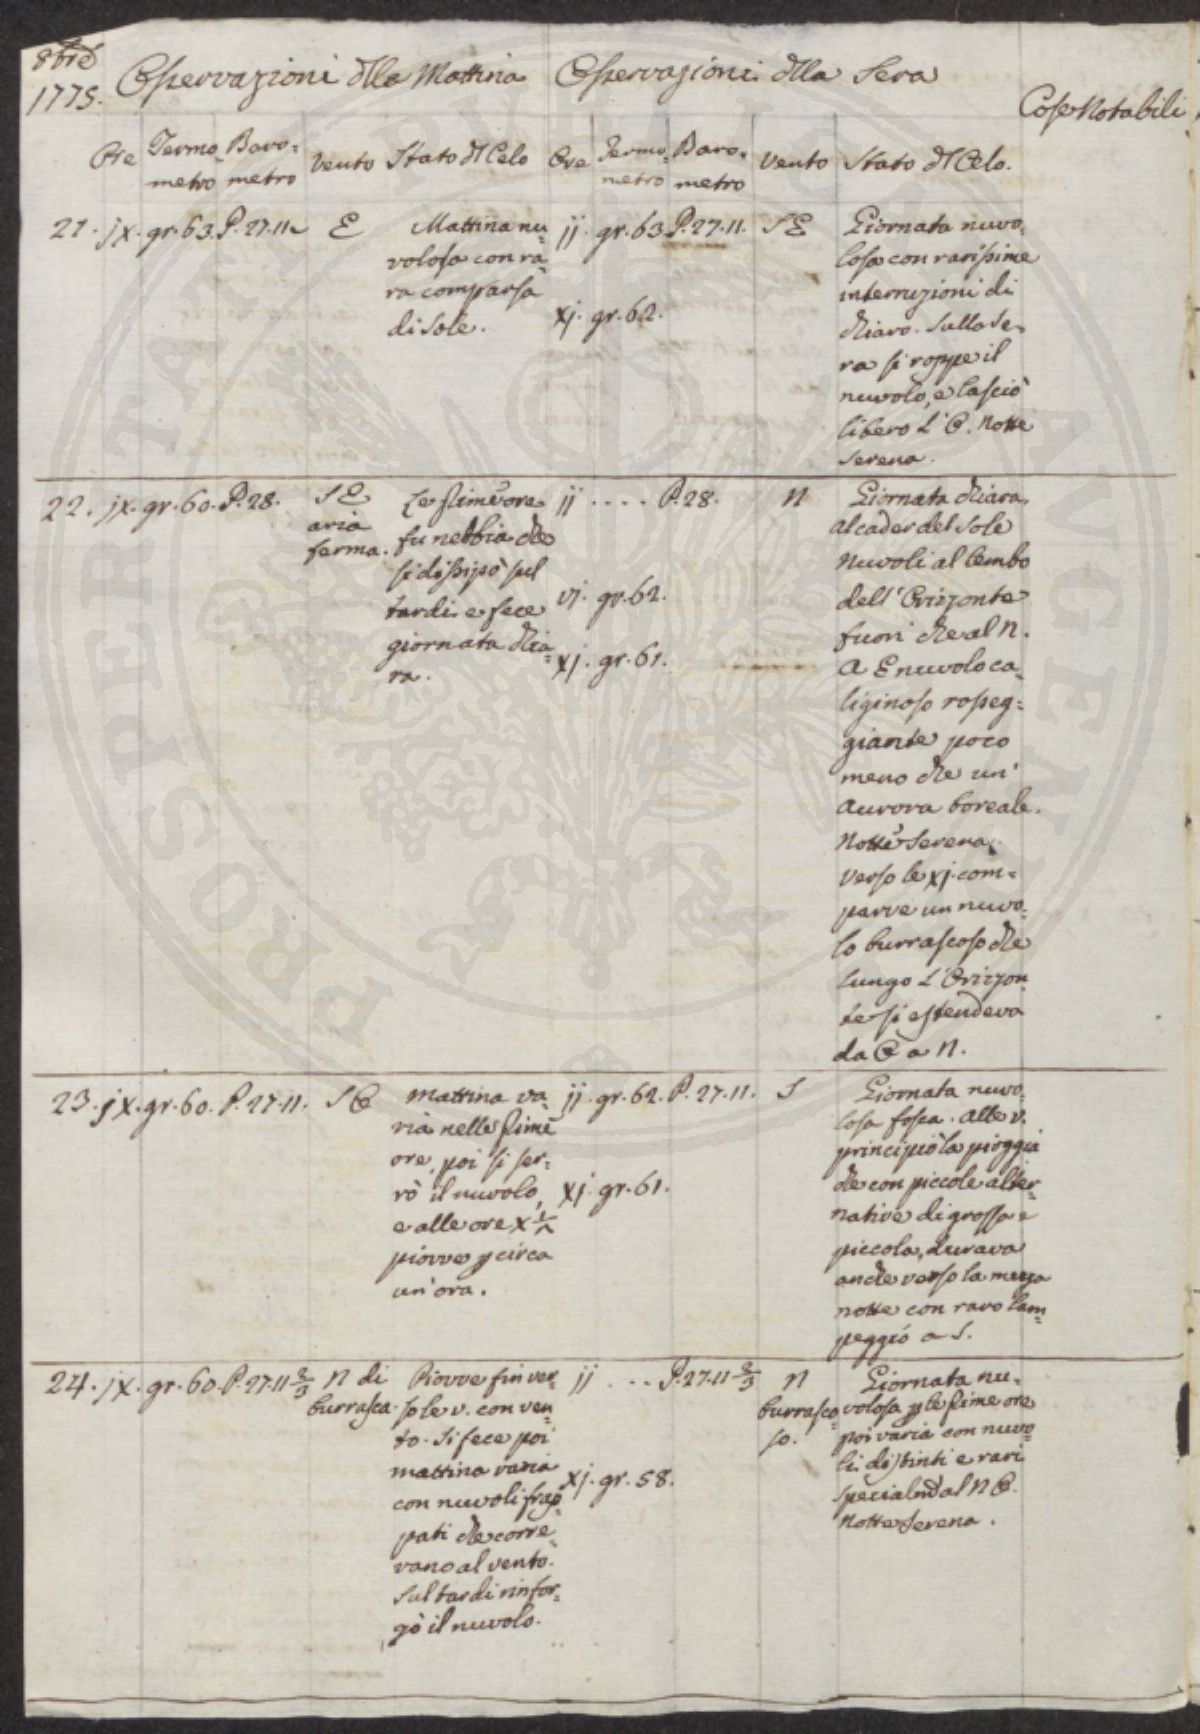 8bre
1775.
Osservazioni dlla Mattina
Osservazioni dlla Sera
Cose Notabili.
Ore
Termo=
metro
Baro=
metro
Vento
Stato dl Celo
Ore
Termo=
metro
Baro=
metro
Vento
Stato dl Celo.
21. jx. gr. 63. P. 27. 11.
E
Mattina nu=
volosa con ra=
ra comparsa
di Sole.
ij. gr. 63. P. 27. 11.
xj. gr. 62.
S E
Giornata nuvo=
losa con rarissime
interruzioni di
chiaro. Sulla Se=
ra si roppe il
nuvolo, e lasciò
libero l' O. Notte
Serena.
22. jx. gr. 60. P. 28.
S O
aria
ferma.
Le prime ore
fu nebbia che
si dissipò sul
tardi e fece
giornata chia=
ra.
ij .... P. 28.
vj. gr. 62.
xj. gr. 61.
N
Giornata chiara,
al cader del Sole
nuvoli al lembo
dell' Orizzonte
fuori che al N.
A E nuvolo ca=
liginoso rosseg=
giante poco
meno che un'
Aurora boreale.
Notte Serena.
Verso le xj. com=
parve un nuvo=
lo burrascoso che
lungo l' Orizzon
te si estendeva
da O a N.
23. jx. gr. 60. P. 27. 11.
S O
Mattina va=
ria nelle prime
ore, poi si ser=
rò il nuvolo,
e alle ore x 1/2
piovve p circa
un' ora.
ij. gr. 62. P. 27. 11.
xj. gr. 61.
S
Giornata nuvo=
losa fosca. Alle v.
principiò la pioggia
che con piccole alter=
native di grossa e
piccola, durava
anche verso la mezza
notte con raro lam=
peggiò a S.
24. jx. gr. 60. P. 27. 11 2/3
N di
burrasca.
Piovve fin ver=
so le v. con ven=
to. Si fece poi
mattina varia
con nuvoli frap=
pati che corre=
vano al vento.
Sul tardi rinfor=
zò il nuvolo.
ij ... P. 27. 11 2/3
xj. gr. 58.
N
burrasco=
so.
Giornata nu=
volosa p le prime ore
poi varia con nuvo=
li distinti e rari
specialmte al N O.
Notte Serena.
PROSPERITATI PUBLICAE AUGENDAE